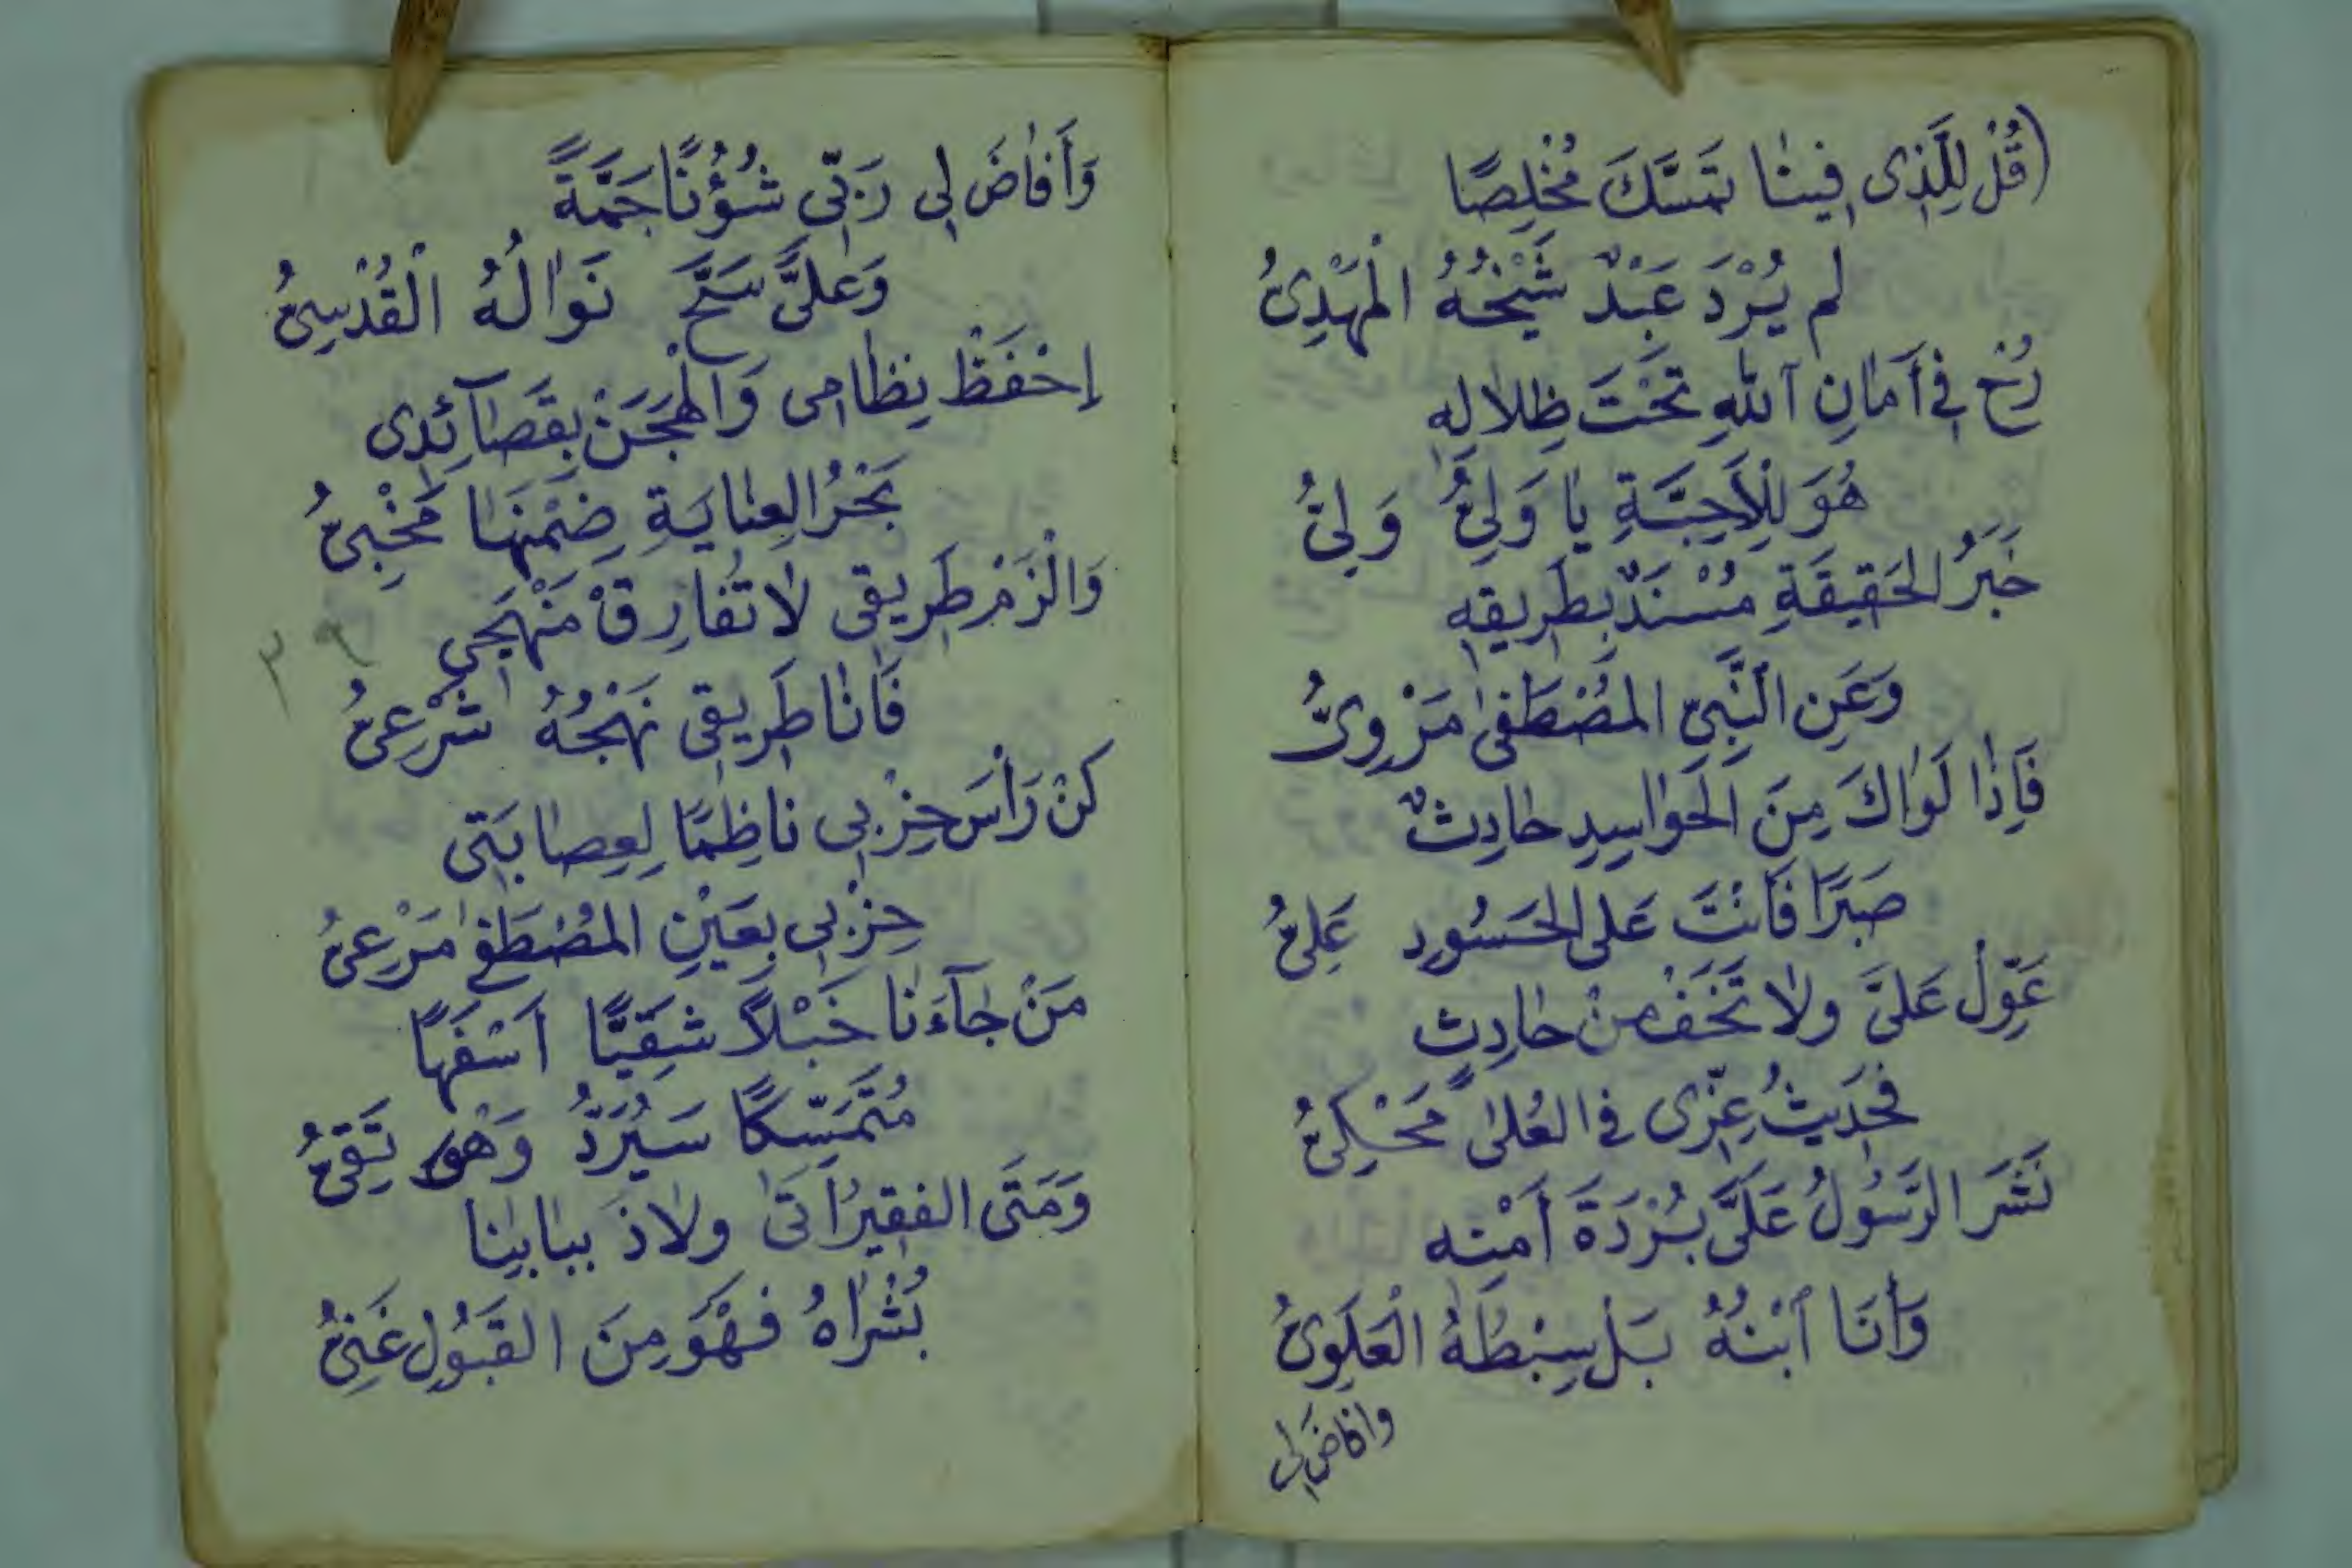 (قُلْ لِلَّذِى فِينٰا تَمَسَّكَ مُخْلِصًا
لم يُرْدَ عَبْدٌ شَيْخُهُ الْمَهْدِىُّ
رُحْ فِى أَمَانِ ٱللهِ تَحْتَ ظِلَالِهِ
هُوَ لِلْأَحِبَّةِ يٰا وَلِىُّ وَلِىُّ
خَبَرُ الحَقِيقَةِ مُسْنَدٌ بِطَرِيقِهِ
وَعَنِ النَّبِىِّ المُصْطَفىٰ مَرْوِىُّ
فَإِذٰا لَوٰاكَ مِنَ الْحَوٰاسِدِ حٰادِثٌ
صَبْرًا فَأَنْتَ عَلى الحَسُودِ عَلِىُّ
عَوِّلْ عَلىَّ ولٰا تَخَفْ مِنْ حٰادِثٍ
فحَدِيثُ عِزِّى فى العُلىٰ مَحْكِىُّ
نَشَرَ الرَّسُولُ عَلَىَّ بُرْدَةَ أَمْنِه
وَأَنَا ٱبْنُهُ بَلْ سِبْطُهُ الْعَلَوِىُّ
وافاضَ لى
وَأَفٰاضَ لِى رَبِّى شُؤُنًا جَمَّةً
وَعَلىَّ سَحَّ نَوٰالُهُ الْقُدْسِىُّ
إحْفَظْ نِظٰامِى وَالْهَجَنْ بِقَصٰآئِدِى
بَحْرُ العِنٰايَةِ ضِمْنَهٰا مَخْبِىُّ
وَالْزَمْ طَرِيقِى لاٰ تُفٰارِقْ مَنْهَجِى
فَأَنٰا طَرِيقِى نَهْجُهُ شَرْعِىُّ
٣٩
كنْ رَأْسَ حِزْبِى ناظِمًا لِعِصٰابَتِى
حِزْبِى بِعَيْنِ المُصْطَفىٰ مَرْعِىُّ
مَنْ جٰآءَنٰا خَبْلاً شَقِيًّا أَسْفَهًا
مُتَمَسِّكًا سَيُرَدُّ وَهْوَ تَقِىُّ
وَمَتَى الفَقِيرُ أَتَىٰ ولٰاذَ ببٰابِنٰا
بُشْرٰاهُ فَهْوَ مِنَ القَبُولِ غَنِىُّ